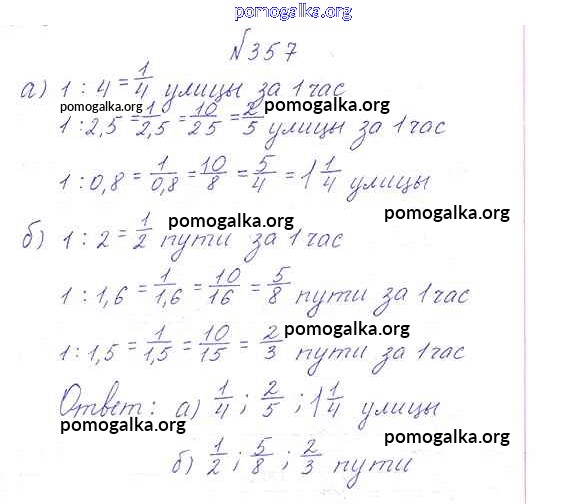 pomogalka.org
№357
а) 1 : 4 = 1/4 улицы за 1 час
pomogalka.org pomogalka.org
1 : 2,5 = 1/2,5 = 10/25 = 2/5 улицы за 1 час
1 : 0,8 = 1/0,8 = 10/8 = 5/4 = 1 1/4 улицы
pomogalka.org
pomogalka.org
б) 1 : 2 = 1/2 пути за 1 час
1 : 1,6 = 1/1,6 = 10/16 = 5/8 пути за 1 час
pomogalka.org
1 : 1,5 = 1/1,5 = 10/15 = 2/3 пути за 1 час
Ответ: а) 1/4 ; 2/5 ; 1 1/4 улицы
pomogalka.org pomogalka.org
б) 1/2 ; 5/8 ; 2/3 пути